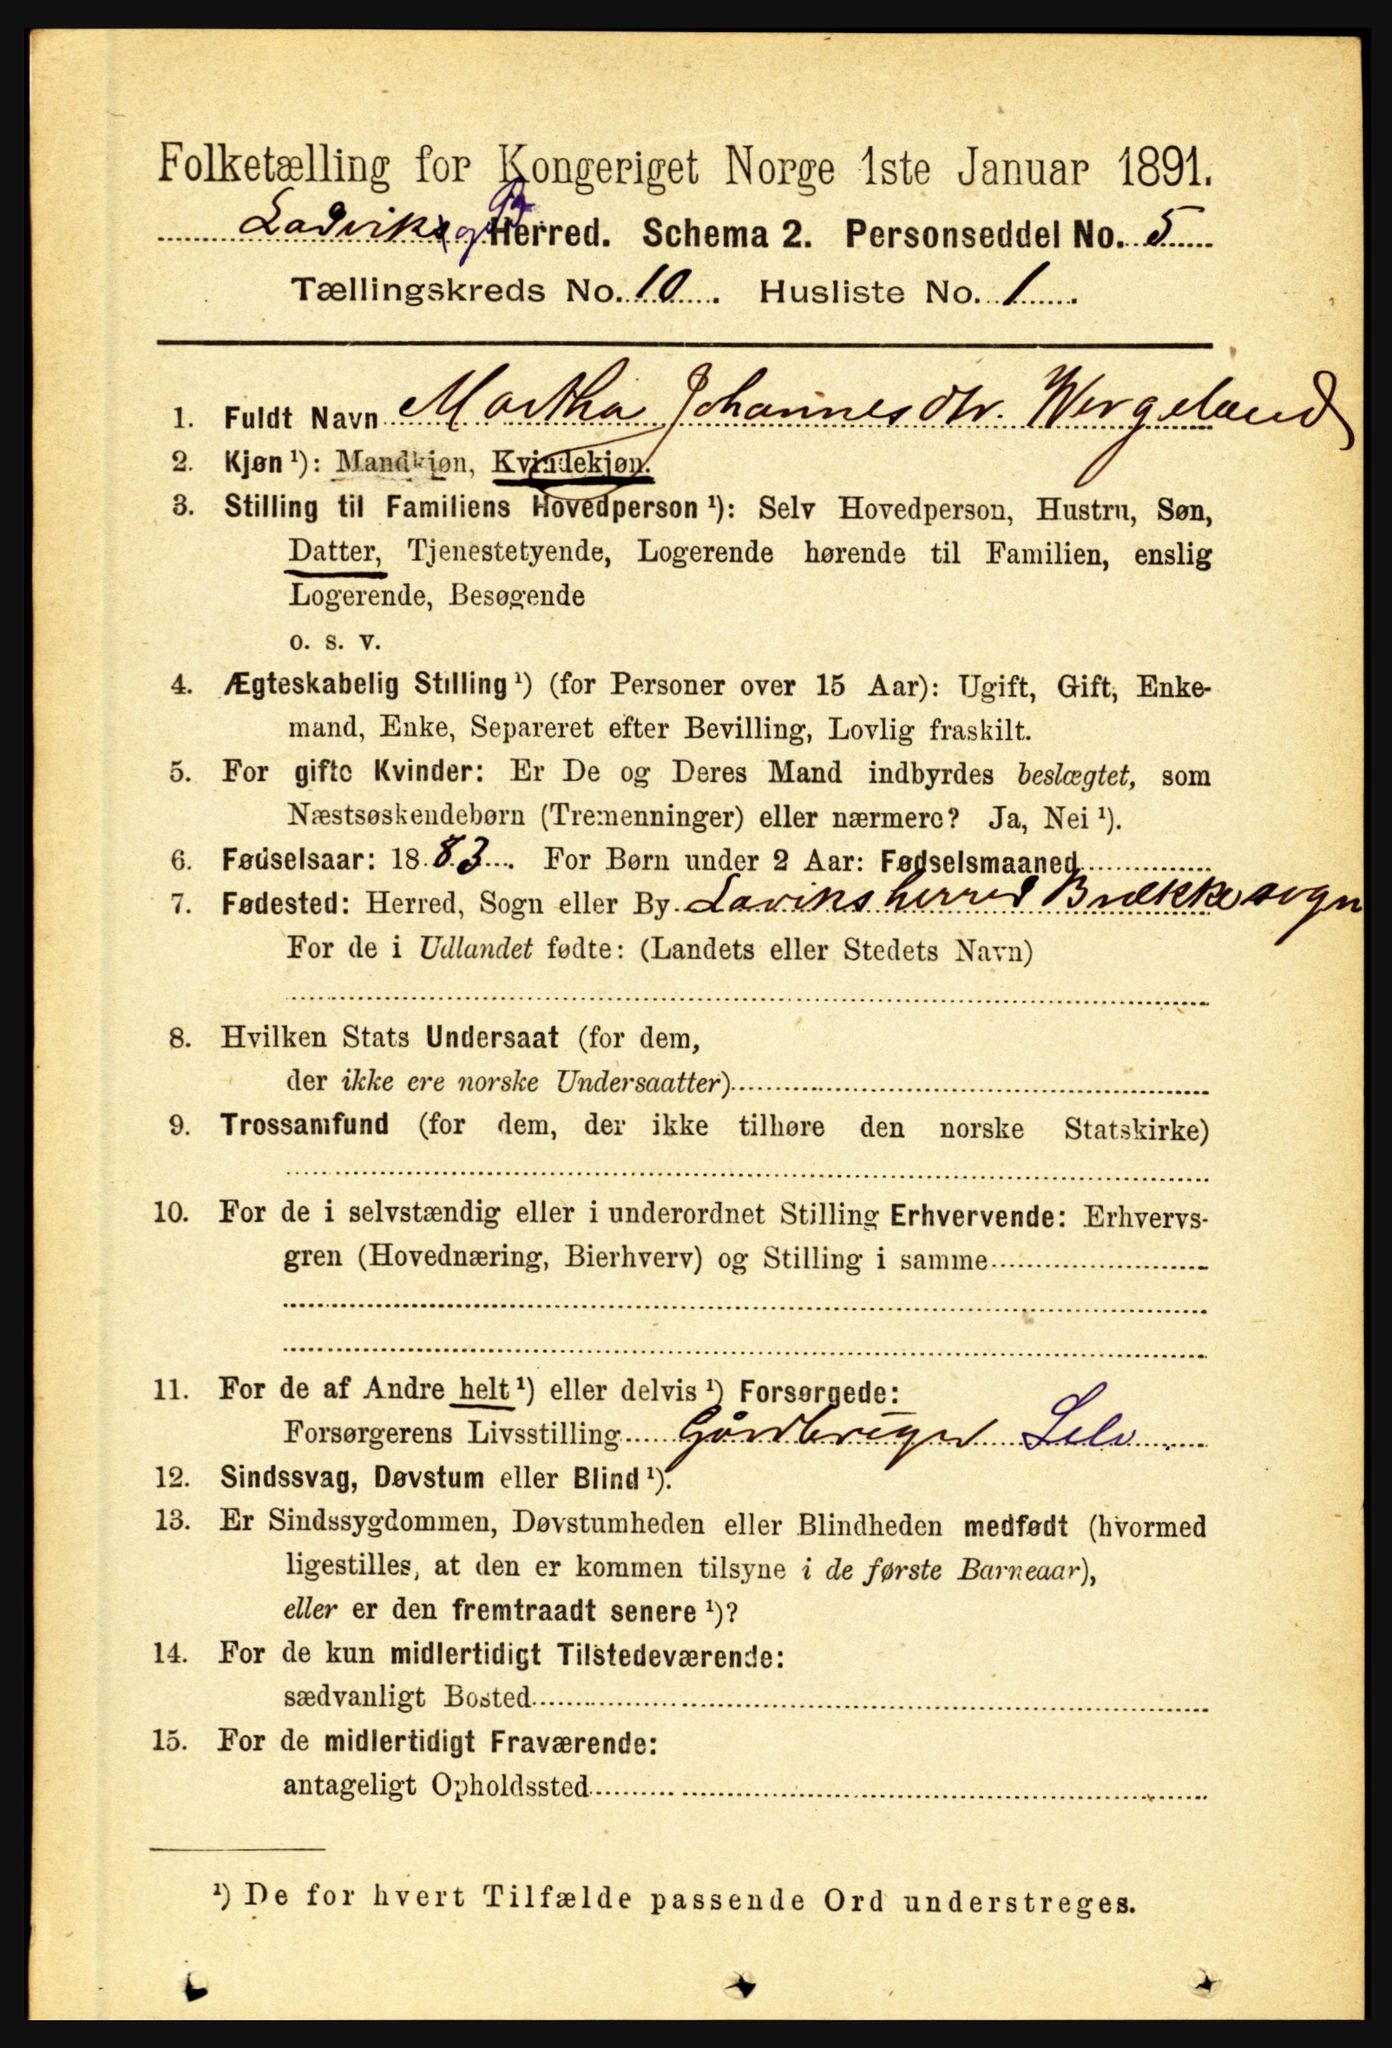 Folketælling for Kongeriget Norge 1ste Januar 1891.
Ladviks og Herred. Schema 2. Personseddel No. 5
Tællingskreds No. 10. Husliste No. 1
1. Fuldt Navn Martha Johannesdtr. Wergeland
2. Kjøn ¹): Mandkjøn, Kvindekjøn.
3. Stilling til Familiens Hovedperson ¹): Selv Hovedperson, Hustru, Søn,
Datter, Tjenestetyende, Logerende hørende til Familien, enslig
Logerende, Besøgende
o. s. v.
4. Ægteskabelig Stilling ¹) (for Personer over 15 Aar): Ugift, Gift, Enke-
mand, Enke, Separeret efter Bevilling, Lovlig fraskilt.
5. For gifte Kvinder: Er De og Deres Mand indbyrdes beslægtet, som
Næstsøskendebørn (Tremenninger) eller nærmere? Ja, Nei ¹).
6. Fødselsaar: 1883. For Børn under 2 Aar: Fødselsmaaned
7. Fødested: Herred, Sogn eller By Laviksherred Brækkesogn
For de i Udlandet fødte: (Landets eller Stedets Navn)
8. Hvilken Stats Undersaat (for dem,
der ikke ere norske Undersaatter)
9. Trossamfund (for dem, der ikke tilhøre den norske Statskirke)
10. For de i selvstændig eller i underordnet Stilling Erhvervende: Erhvervs-
gren (Hovednæring, Bierhverv) og Stilling i samme
11. For de af Andre helt ¹) eller delvis ¹) Forsørgede:
Forsørgerens Livsstilling Gårdbruger Selv
12. Sindssvag, Døvstum eller Blind ¹).
13. Er Sindssygdommen, Døvstumheden eller Blindheden medfødt (hvormed
ligestilles, at den er kommen tilsyne i de første Barneaar),
eller er den fremtraadt senere ¹)?
14. For de kun midlertidigt Tilstedeværende:
sædvanligt Bosted
15. For de midlertidigt Fraværende:
antageligt Opholdssted
¹) De for hvert Tilfælde passende Ord understreges.